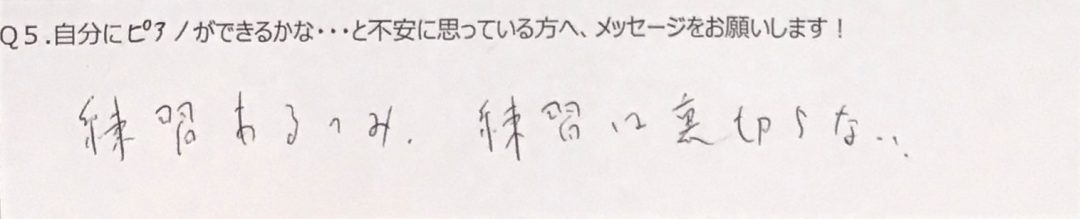 Q5.自分にピアノができるかな・・・と不安に思っている方へ、メッセージをお願いします！
練習あるのみ. 練習は裏切らない.